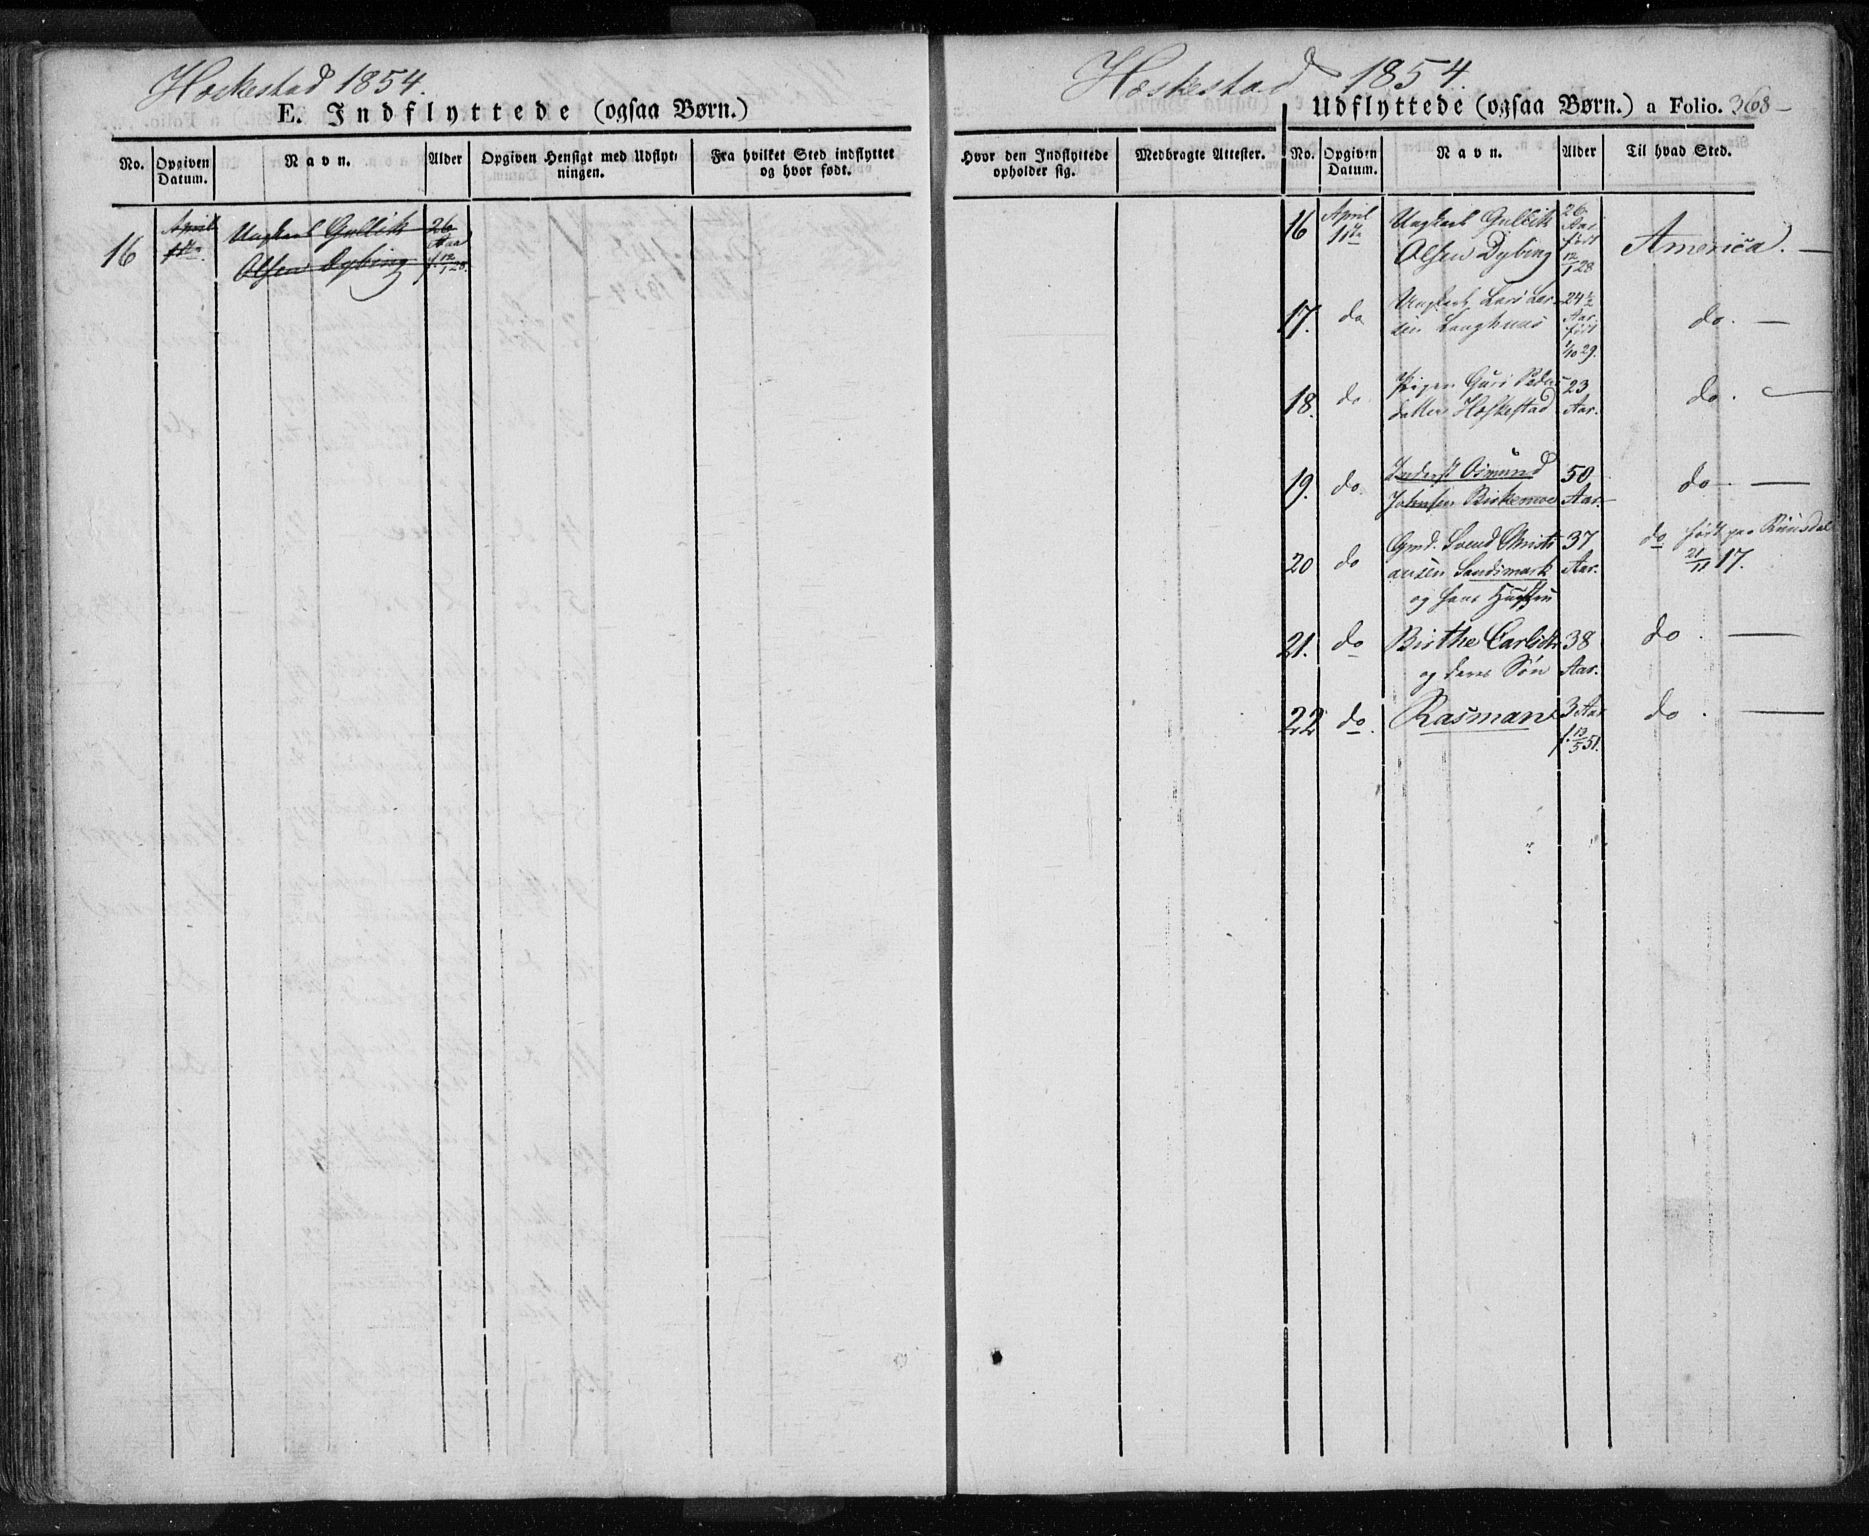 Heskestad 1854.
E. Indflyttede (ogsaa Børn.)
No. Opgiven Datum. Navn. Alder Opgiven Hensigt med Udflyt-
ningen. Fra hvilket Sted indflyttet
og hvor født.
16 April 11te Ungkarl Gullik 26 Aar
Olsen Dybing f. 12/1 28.
Heskestad 1854.
Udflyttede (ogsaa Børn.) a Folio. 368
Hvor den Indflyttede
opholder sig. Medbragte Attester. No. Opgiven Datum. Navn. Alder Til hvad Sted.
16 April 11te Ungkarl Gullik 26 Aar født America.
Olsen Dybing 12/1 28
17. do Ungkarl Lars Lar- 24 1/2 Aar. født do.
sen Langhuus 1/10 29.
18. do Pigen Guri Peders- 23 do.
datter Heskestad Aar.
19. do Inderst Osmund 50 do
Johnsen Birkemoe Aar.
20 do Gmd. Svend Christi- 37 do født paa Ruusdal
ansen Sandsmark Aar. 21/11 17.
og hans Hustru
21. do Birthe Carlsdtr 38 do.
og deres Søn Aar.
22 do. Rasman 3 Aar do.
f. 12/5 51.